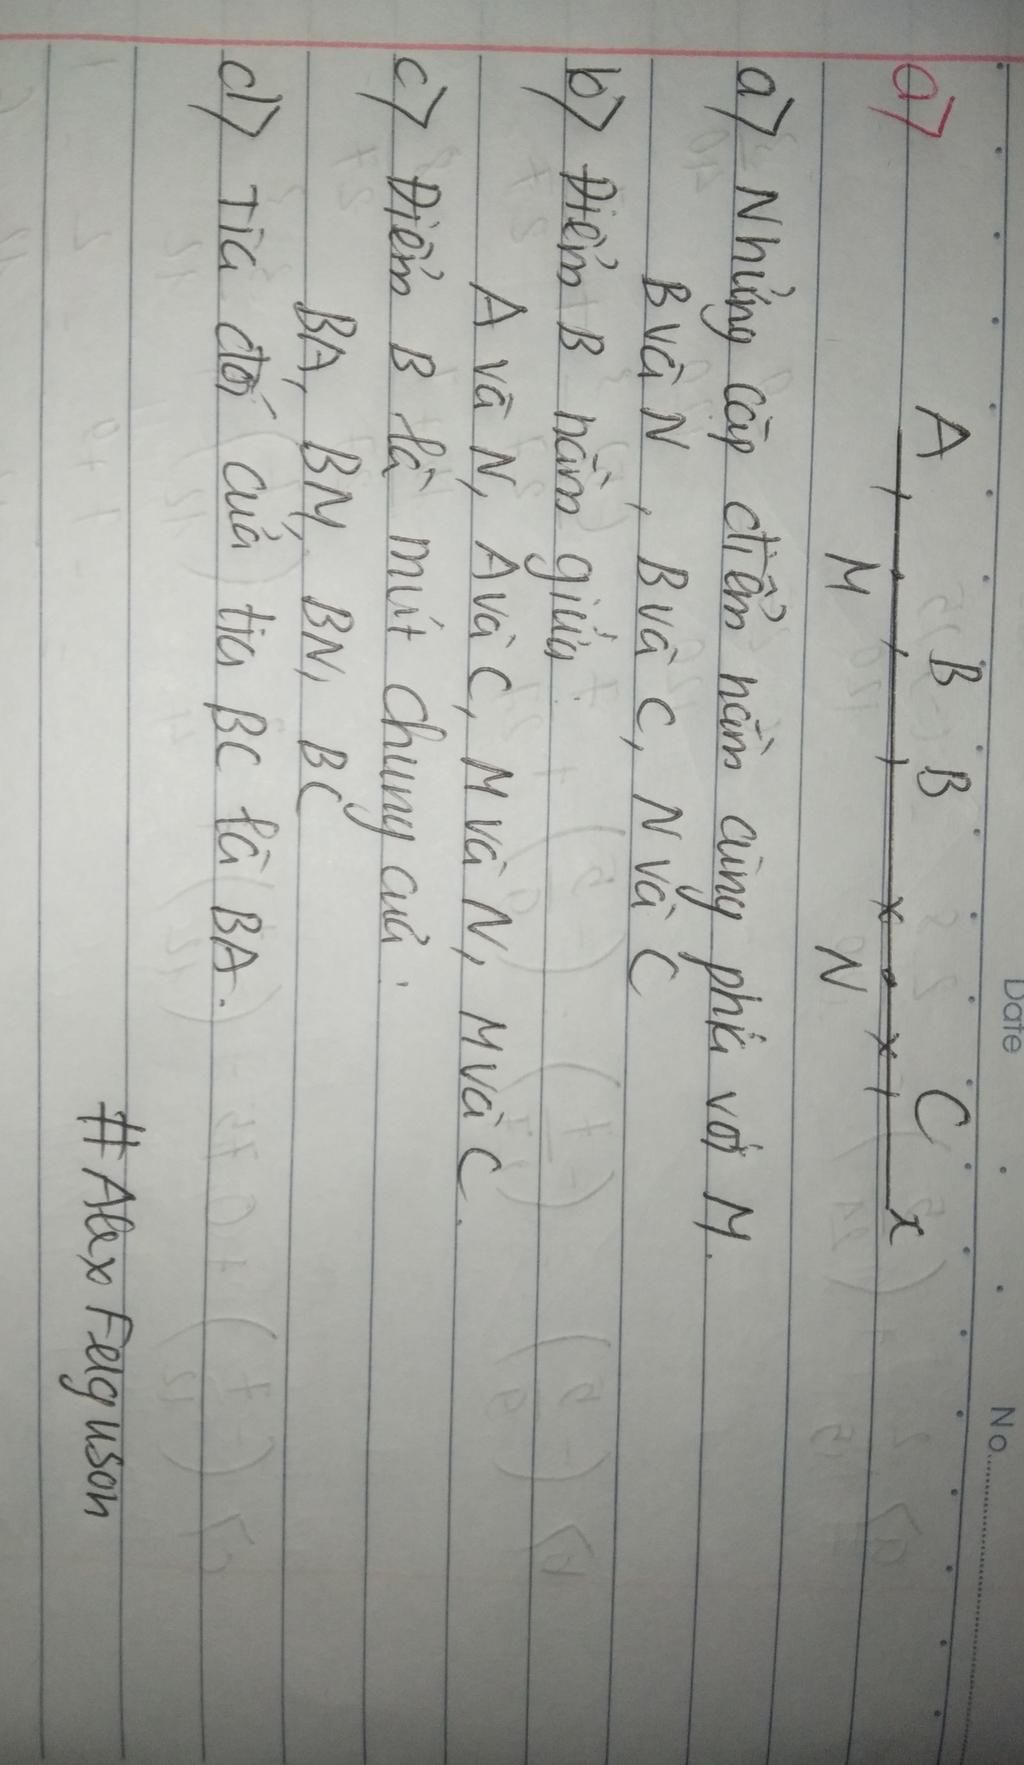 Date
No.
a)
A B B C x
M N
a) Những cặp điểm nằm cùng phía với M.
B và N, B và C, N và C
b) Điểm B nằm giữa:
A và N, A và C, M và N, M và C.
c) Điểm B là mút chung của:
BA, BM, BN, BC
d) Tia đối của tia BC là BA.
#Alex Felguson